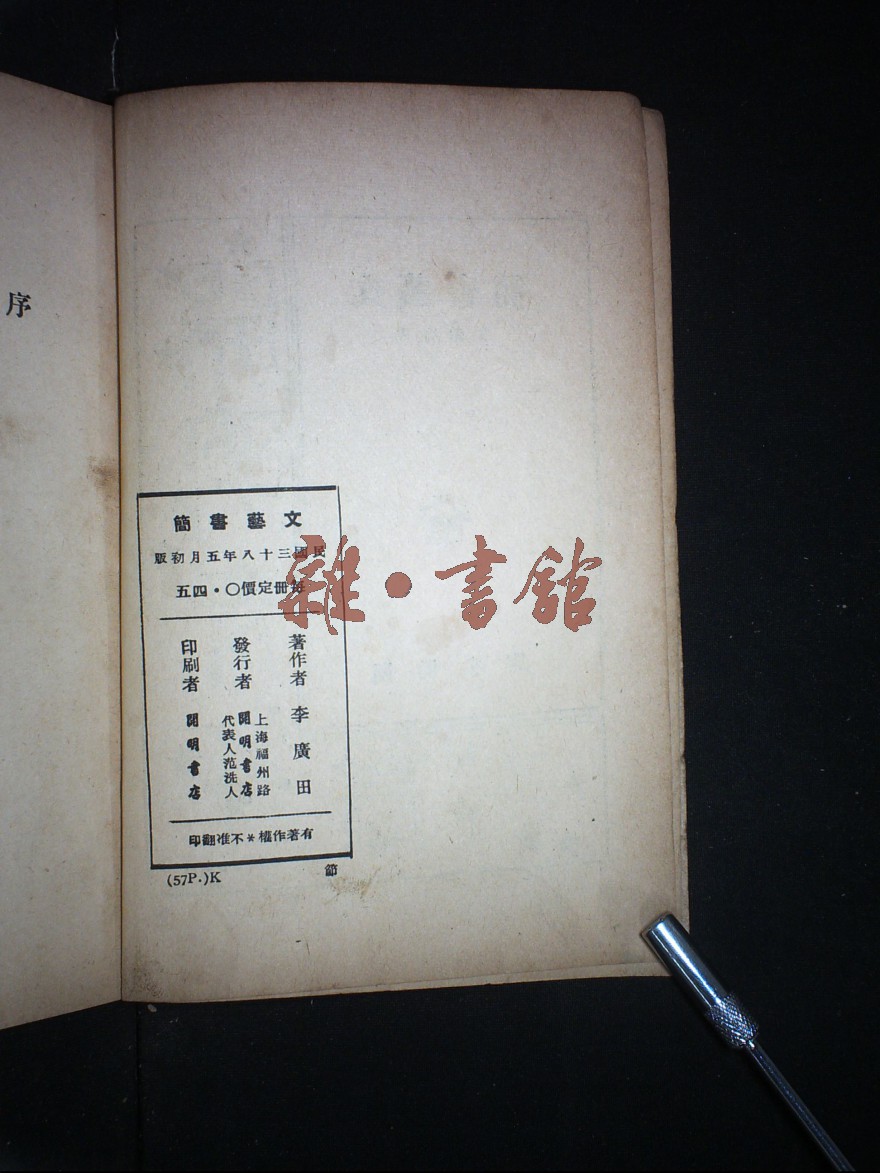 序
文藝書簡
民國三十八年五月初版
每冊定價〇・四五
著作者 李廣田
發行者 上海福州路
開明書店
代表人范洗人
印刷者 開明書店
有著作權*不准翻印
(57P.)K
節
雜・書館